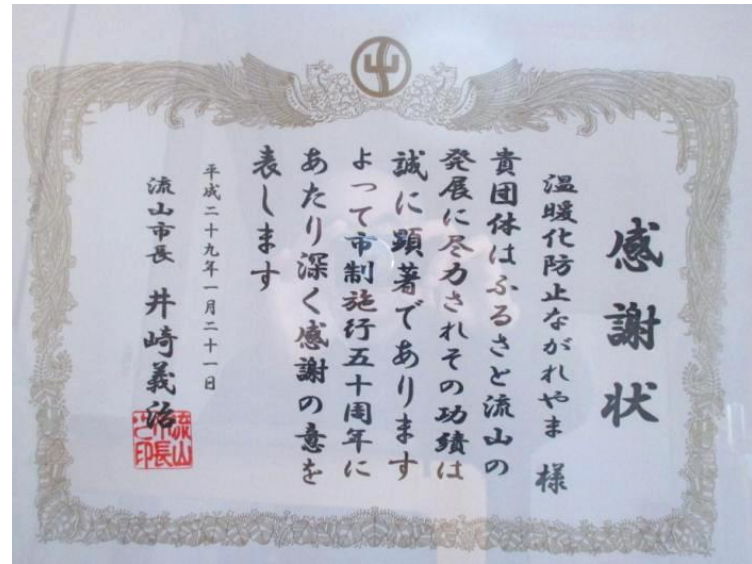 感謝状
温暖化防止ながれやま 様
貴団体はふるさと流山の
発展に尽力されその功績は
誠に顕著であります
よって市制施行五十周年に
あたり深く感謝の意を
表します
平成二十九年一月二十一日
流山市長 井崎義治
流山市長之印